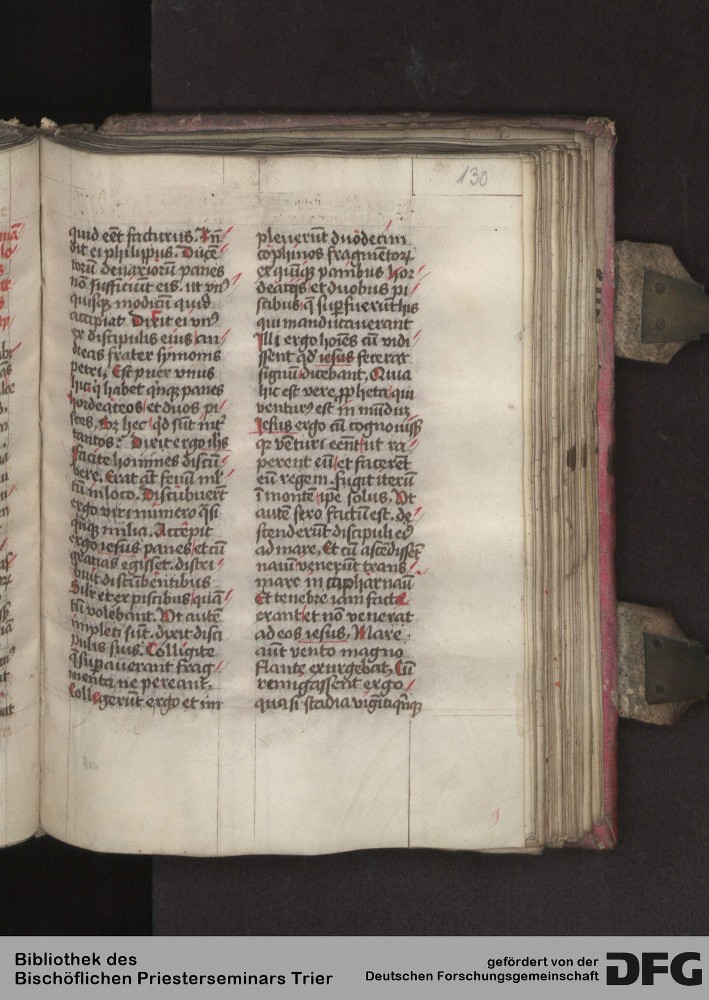 130
quid eēt facturus. Rn̄
dit ei philippus. Ducē
torū denariorū panes
nō sufficiūt eis. ut vnꝰ
quisqꝫ modicū quid
accipiat. Dixit ei vnꝰ
ex discipulis eius an
dreas frater symonis
petri. Est puer vnus
hic q̄ habet qnqꝫ panes
hordeaceos et duos pi
sces. Sꝫ hec qd sūt int̄
tantos? Dixit ergo ihs
Facite homines discū
bere. Erat aūt fenū ml̄
tū in loco. Discubuerūt
ergo viri numero q̄si
qnqꝫ milia. Accepit
ergo iesus panes et cū
gratias egisset. distri
buit discūbentibus
Silr et ex piscibus quā
tū volebant. Vt autē
impleti sūt. dixit disci
pulis suis. Colligite
q̄ supauerant frag
menta ne pereant.
Collegerūt ergo et im
pleuerūt duodecim
cophinos fragmētorꝝ
ex quīqꝫ panibus hor
deaceis et duobus pi
scibus q̄ supfuerūt his
qui manducauerant
Illi ergo hoīes cū vidi
ssent qd iesus fecerat
signū dicebant. Quia
hic est vere ppheta qui
venturꝰ est in mūdū
Iesus ergo cū cognouissꝫ
qꝛ vēturi eēnt ut ra
perent eū et facerēt
eū regem. fugit iterū
ī montē ipe solus. Vt
autē sero factū est. de
scenderūt discipuli eiꝰ
ad mare. Et cū ascēdissēt
nauī venerūt trans
mare in capharnaū
Et tenebre iam facte
erant et nō venerat
ad eos iesus. Mare
aūt vento magno
flante exurgebat. Cū
remigassent ergo
quasi stadia vigītiqnqꝫ
Bibliothek des
Bischöflichen Priesterseminars Trier
gefördert von der
Deutschen Forschungsgemeinschaft
DFG